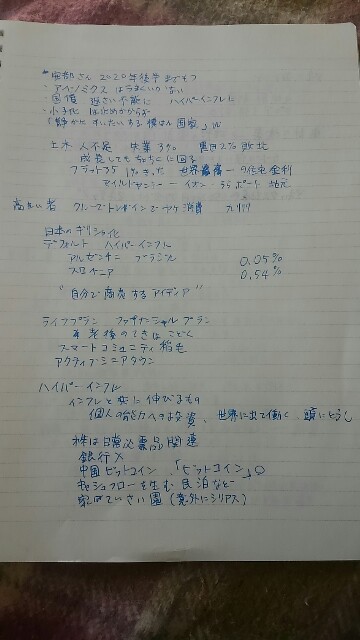 ・阿部さん 2020年後半までもつ
・アベノミクス はうまくいかない
・国債 返さい不能に ハイパーインフレに
・少子化 は止めかからず
「静かに すいたいする 横はん 国家」
土木 人不足 失業 3% 黒田 2% 敗北
成長しても ちょちょに 回る
フラット35 1% きった 世界最高 の住宅金利
マイルドヤンキー イオン ららポート 地元
高れい者 クルーズトレイン で ヤケ消費 九州
日本のギリシャ化
デフォルト ハイパーインフレ
アルゼンチン ブラジル 0.05%
スロベニア 0.54%
"自分で商売するアイデア"
ライフプラン ファイナンシャルプラン
老後のてきは こどく
スマートコミュニティ 稲毛
アクティブシニアタウン
ハイパーインフレ
インフレと共に伸びるもの
個人の能力への投資、世界に出て働く、頭にとうし
株は日常必需品関連
銀行×
中国ビットコイン 「ビットコイン」○
キャシュフローを生む 民泊など
家庭さい園 (意外にシリアス)